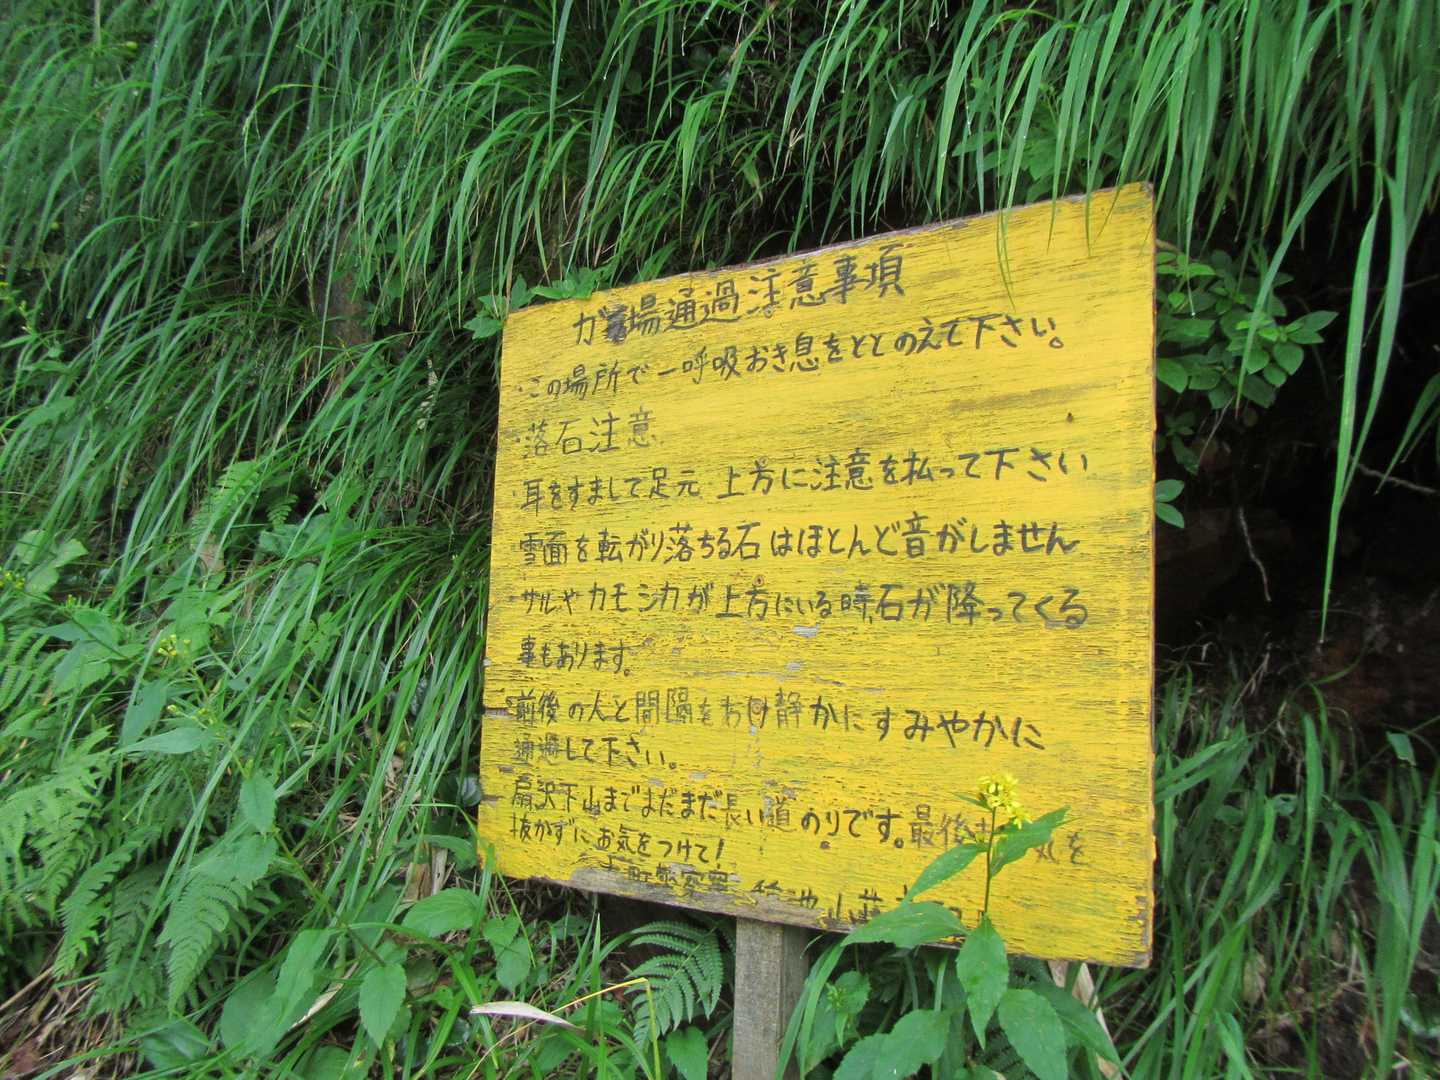 ガラ場通過注意事項
・この場所で一呼吸おき息をととのえて下さい。
・落石注意
・耳をすまして足元、上方に注意を払って下さい
雪面を転がり落ちる石はほとんど音がしません
・サルやカモシカが上方にいる時、石が降ってくる
事もあります。
・前後の人と間隔をあけ静かにすみやかに
通過して下さい。
扇沢下山までまだまだ長い道のりです。最後 気を
抜かずにお気をつけて!
山荘